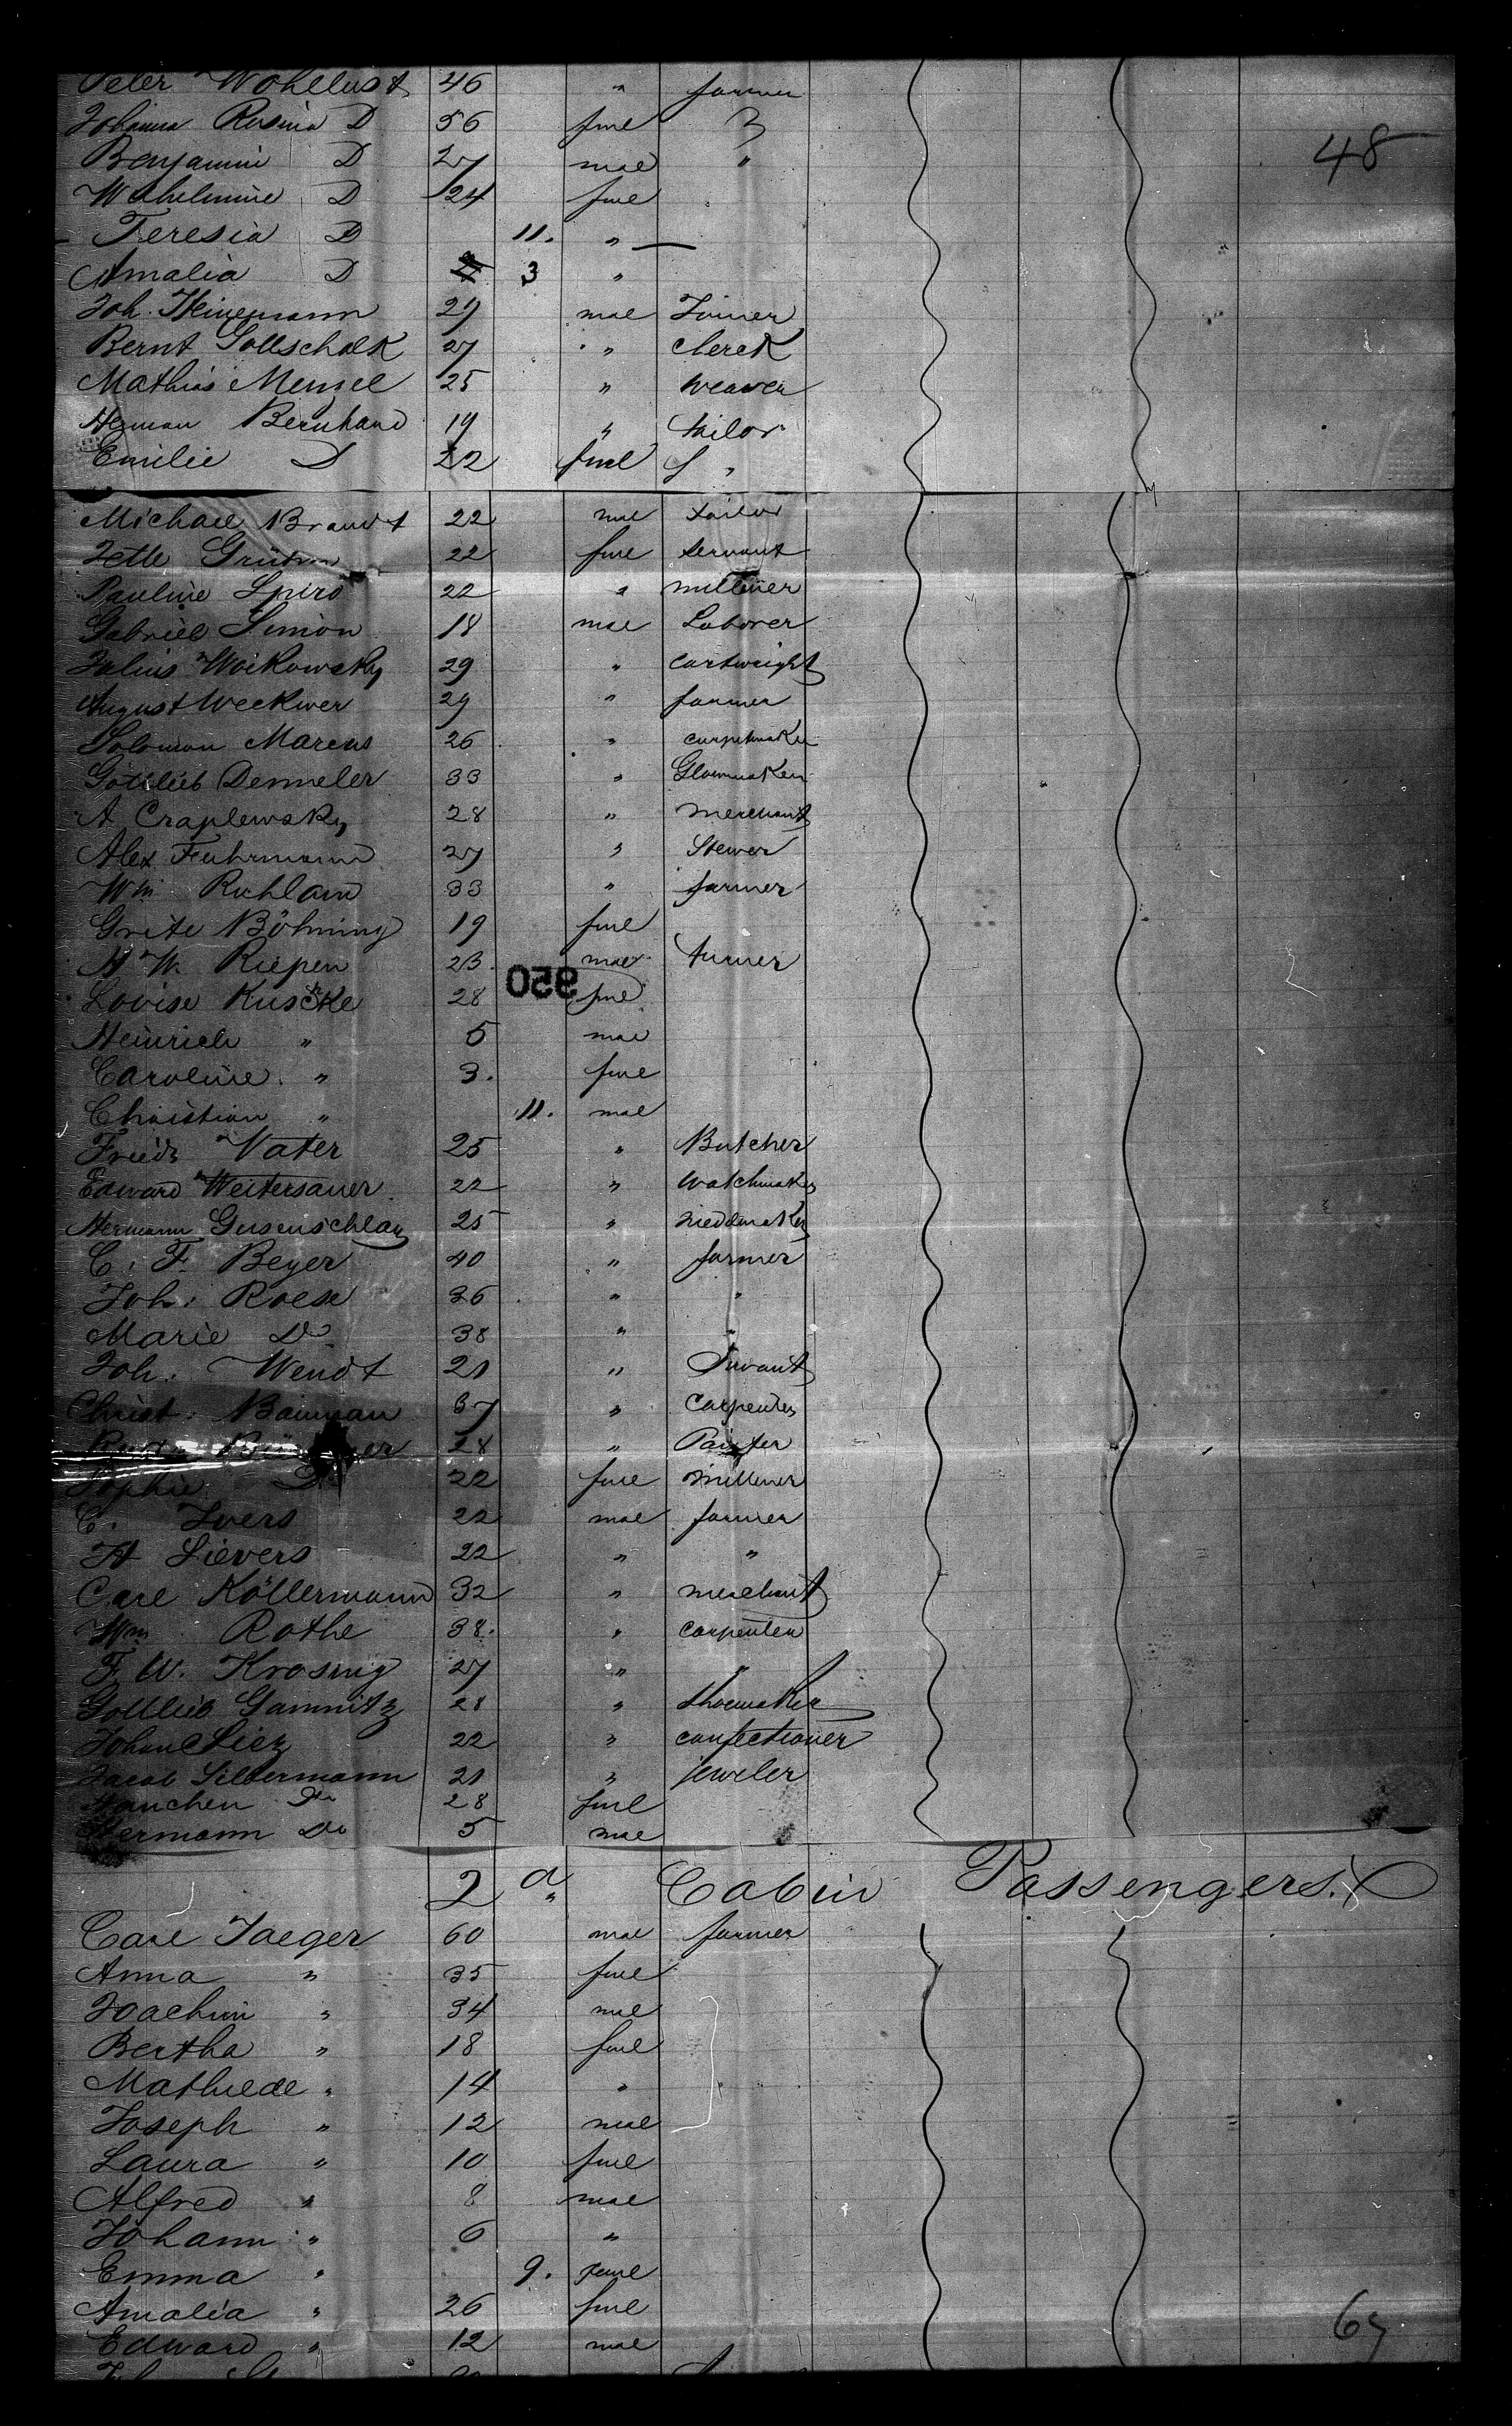 Peter Wohllust 46 " farmer
Johanna Rosina D 56 fml "
Benjamin D 27 mal " 48
Wilhelmine D 24 fml
Teresia D 11. "
Amalia D 3 "
Joh. Heinemann 29 mal Joiner
Bernt Gottschalk 27 " clerck
Mathias Menzel 25 " weaver
Herman Bernhard 19 " tailor
Emilie D 22 fml "
Michael Brandt 22 mal tailor
Jette 22 fml servant
Pauline Spiro 22 " milliner
Gabriel Simon 18 mal Laborer
Julius Woikowsky 29 " cartwright
August Weckwer 29 " farmer
Solomon Marcus 26 "
Gottlieb Denneler 33 "
A Craplewsky 28 " merchant
Alex Fuhrmann 27 " Stewer
Wm Richlam 33 " farmer
Grete Böhning 19 fml
H W. Riepen 23. mal turner
950
Lovise Kuschke 28 fml
Heinrich " 5 mal
Caroline. " 3. fml
Christian " 11. mal
Friedr Vater 25 " Butcher
Edward Weitersauer. 22 " Watchmaker
Hermann Gusenschlag 25 "
C. F. Beyer 40 " farmer
Joh: Roese 36 " "
Marie Do 38 " "
Joh: Wendt 21 " Servant
Christ: Bauman 37 " Carpenter
28 " Painter
Sophie D 22 fml milliner
C. Ivers 22 mal farmer
H Sievers 22 " "
Carl Köllermann 32 " merchant
Wm Rothe 38. " carpenter
F. W. Krosing 27 " "
Gottlieb Gamnitz 28 " shoemaker
Johann Siez 22 " confectioner
Jacob Silbermann 21 " jeweler
Hanchen Do 28 fml
Hermann Do 5 mal
2d Cabin Passengers.
Carl Jaeger 60 mal farmer
Anna " 35 fml
Joachim " 34 mal
Bertha " 18 fml
Mathilde " 14 "
Joseph " 12 mal
Laura " 10 fml
Alfred " 8 mal
Johann " 6 "
Emma " 9. fml
Amalia " 26 fml
Edward " 12 mal
67